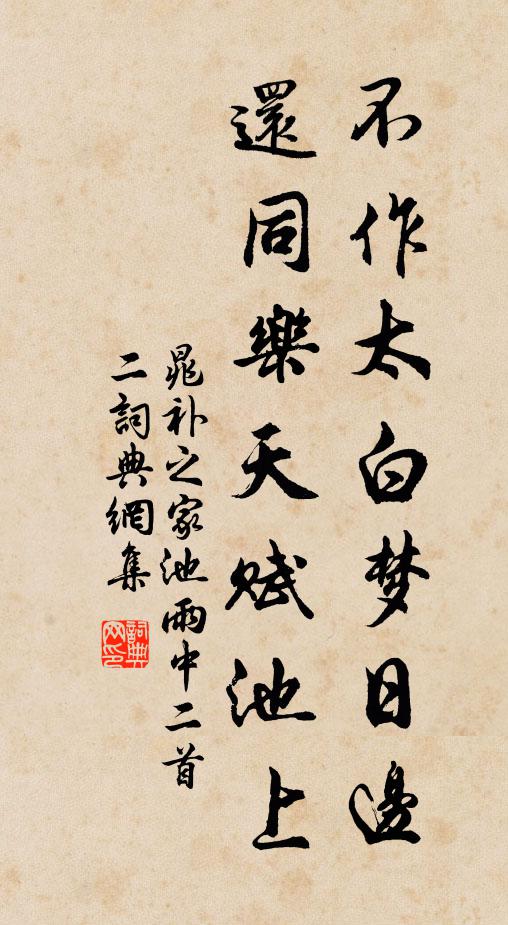 不作太白梦日邊
還同樂天赋池上
晁补之家池雨中二首
二詞典網集
詞典
网印